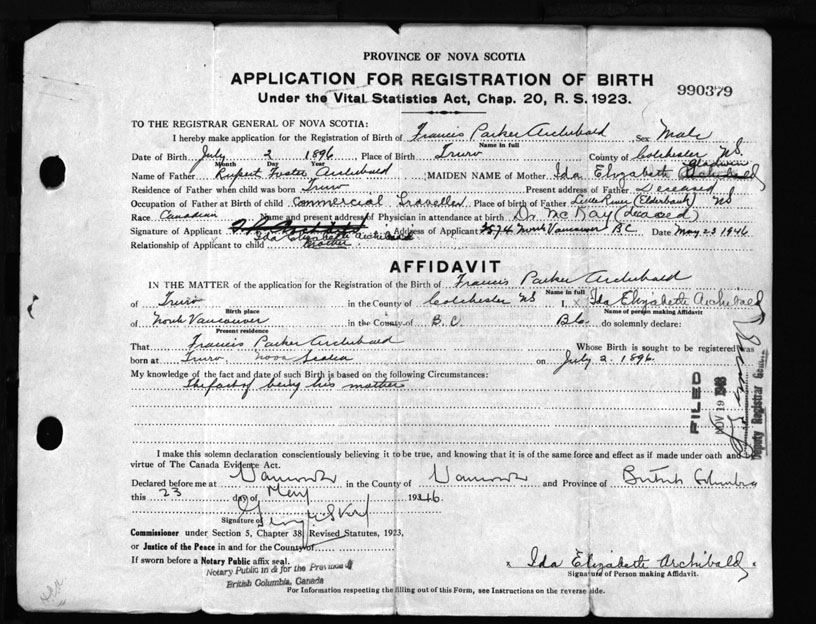 PROVINCE OF NOVA SCOTIA
APPLICATION FOR REGISTRATION OF BIRTH
990379
Under the Vital Statistics Act, Chap. 20, R. S. 1923.
TO THE REGISTRAR GENERAL OF NOVA SCOTIA:
I hereby make application for the Registration of Birth of Francis Parker Archibald Sex Male
Name in full
Date of Birth July 2 1896 Place of Birth Truro County of Colchester NS.
Month Day Year
Name of Father Rupert Foster Archibald MAIDEN NAME of Mother Ida Elizabeth Archibald
Residence of Father when child was born Truro Present address of Father Deceased
Occupation of Father at Birth of child Commercial Traveller Place of birth of Father Little River (Elderbank) NS
Race Canadian Name and present address of Physician in attendance at birth Dr. McKay (deceased)
Signature of Applicant Ida Elizabeth Archibald Address of Applicant North Vancouver BC Date May 23 1946
Relationship of Applicant to child mother
AFFIDAVIT
IN THE MATTER of the application for the Registration of the Birth of Francis Parker Archibald
Name in full
of Truro in the County of Colchester NS I, x Ida Elizabeth Archibald
Birth place Name of person making Affidavit
of North Vancouver in the County of B.C. do solemnly declare:
Present residence
That Francis Parker Archibald Whose Birth is sought to be registered was
born at Truro Nova Scotia on July 2. 1896.
My knowledge of the fact and date of such Birth is based on the following Circumstances:
The fact of being his mother
FILED
NOV 19 1946
Deputy Registrar General
I make this solemn declaration conscientiously believing it to be true, and knowing that it is of the same force and effect as if made under oath and by
virtue of The Canada Evidence Act.
Declared before me at Vancouver in the County of Vancouver and Province of British Columbia
this 23 day of May 1946.
Signature of
Commissioner under Section 5, Chapter 38, Revised Statutes, 1923,
or Justice of the Peace in and for the County of
If sworn before a Notary Public affix seal.
Notary Public in & for the Province of
British Columbia, Canada
x Ida Elizabeth Archibald x
Signature of Person making Affidavit.
For Information respecting the filling out of this Form, see Instructions on the reverse side.